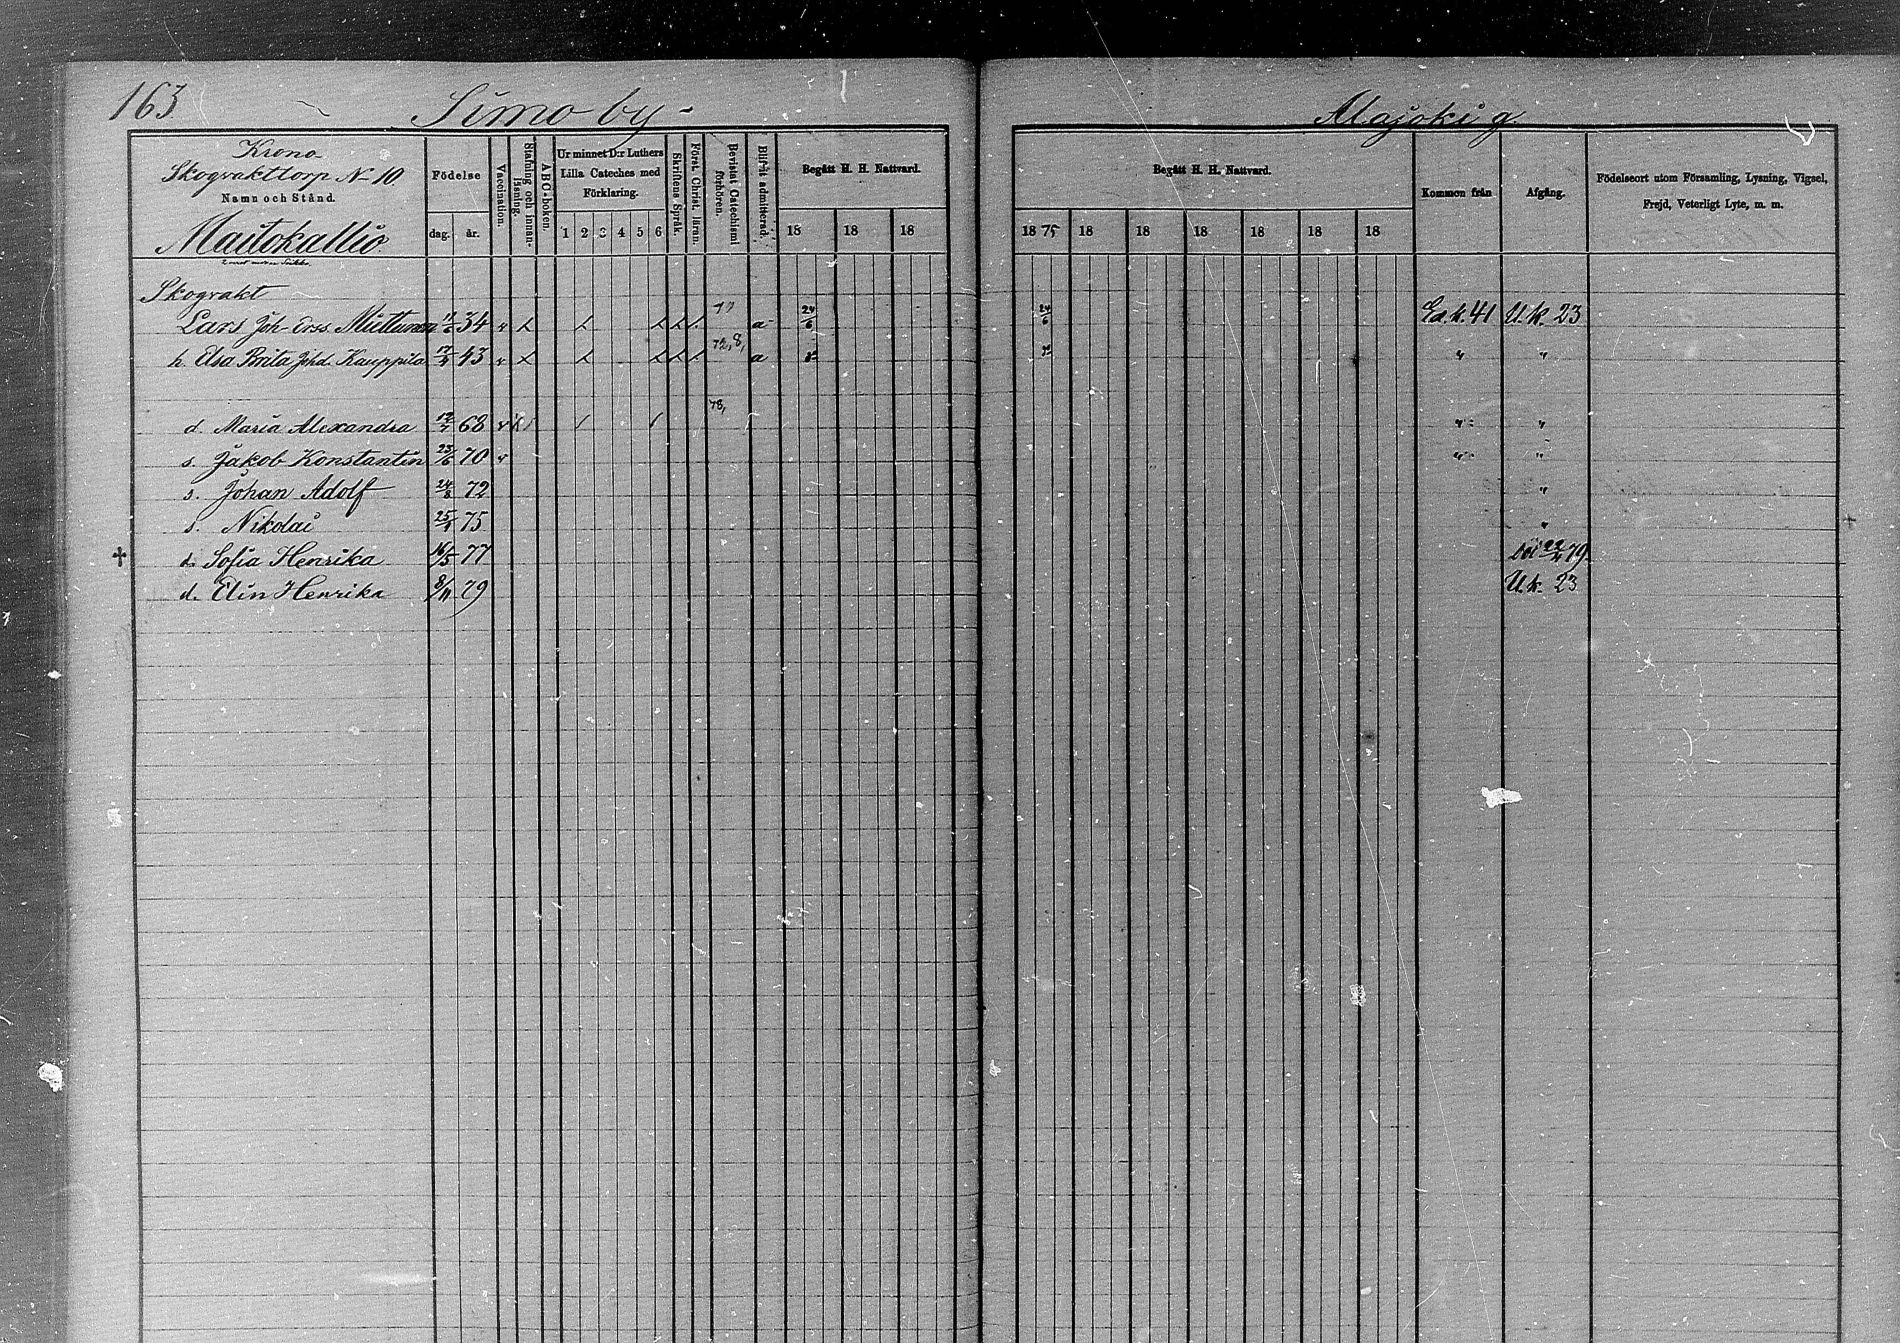 163
Simo by
Alajoki g
Krono
Skogvakttorp No 10.
Namn och Stånd.
Maitokallio
Födelse
dag. år.
Vaccination.
Stafning och innanläsning.
ABC-boken.
Ur minnet D:r Luthers Lilla Cateches med Förklaring.
1 2 3 4 5 6
Skriftens Språk.
Först. Christ. läran.
Bevistat Catechismi förhören.
Blifvit admitterad.
Begått H. H. Nattvard.
18 18 18
Begått H. H. Nattvard.
18 75 18 18 18 18 18 18
Kommen från
Afgång.
Födelseort utom Församling, Lysning, Vigsel, Frejd, Veterligt Lyte, m. m.
Skogvakt
Lars Joh. Erss. Miettunen 34 v a 24/6 24/6 41 U.k. 23
h. Elsa Brita Johd. Kauppila 43 v 72, 8, a " "
78,
d. Maria Alexandra 68 v " "
s. Jakob Konstantin 23/6 70 v " "
s. Johan Adolf 24/8 72 "
s. Nikolai 75 "
† d. Sofia Henrika 16/5 77 79.
d. Elin Henrika 8/11 79 U.k. 23